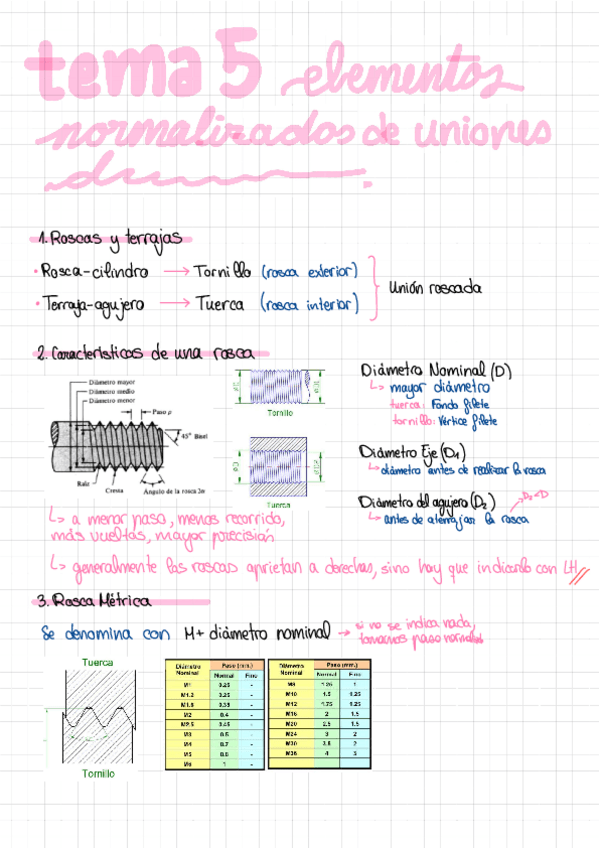 tema 5 elementos
normalizados de uniones
1. Roscas y terrajas
• Rosca-cilindro → Tornillo (rosca exterior)
• Terraja-agujero → Tuerca (rosca interior)
Unión roscada
2. Características de una rosca
Diámetro mayor
Diámetro medio
Diámetro menor
Paso p
45° Bisel
Raíz
Cresta
Angulo de la rosca 2α
Tornillo
Tuerca
Diámetro Nominal (D)
↳ mayor diámetro
tuerca: Fondo filete
tornillo: Vértice filete
Diámetro Eje (D1)
↳ diámetro antes de realizar la rosca
Diámetro del agujero (D2) → D2<D
↳ antes de aterrajar la rosca
↳ a menor paso, menos recorrido,
más vueltas, mayor precisión
↳ generalmente las roscas aprietan a derechas, sino hay que indicarlo con LH
3. Rosca Métrica
Se denomina con M+ diámetro nominal → si no se indica nada,
tomamos paso normal
Tuerca
Tornillo
Diámetro Nominal Paso (mm.)
Normal Fino
M1 0.25 -
M1.2 0.25 -
M1.6 0.35 -
M2 0.4 -
M2.5 0.45 -
M3 0.5 -
M4 0.7 -
M5 0.8 -
M6 1 -
Diámetro Nominal Paso (mm.)
Normal Fino
M8 1.25 1
M10 1.5 1.25
M12 1.75 1.25
M16 2 1.5
M20 2.5 1.5
M24 3 2
M30 3.5 2
M36 4 3